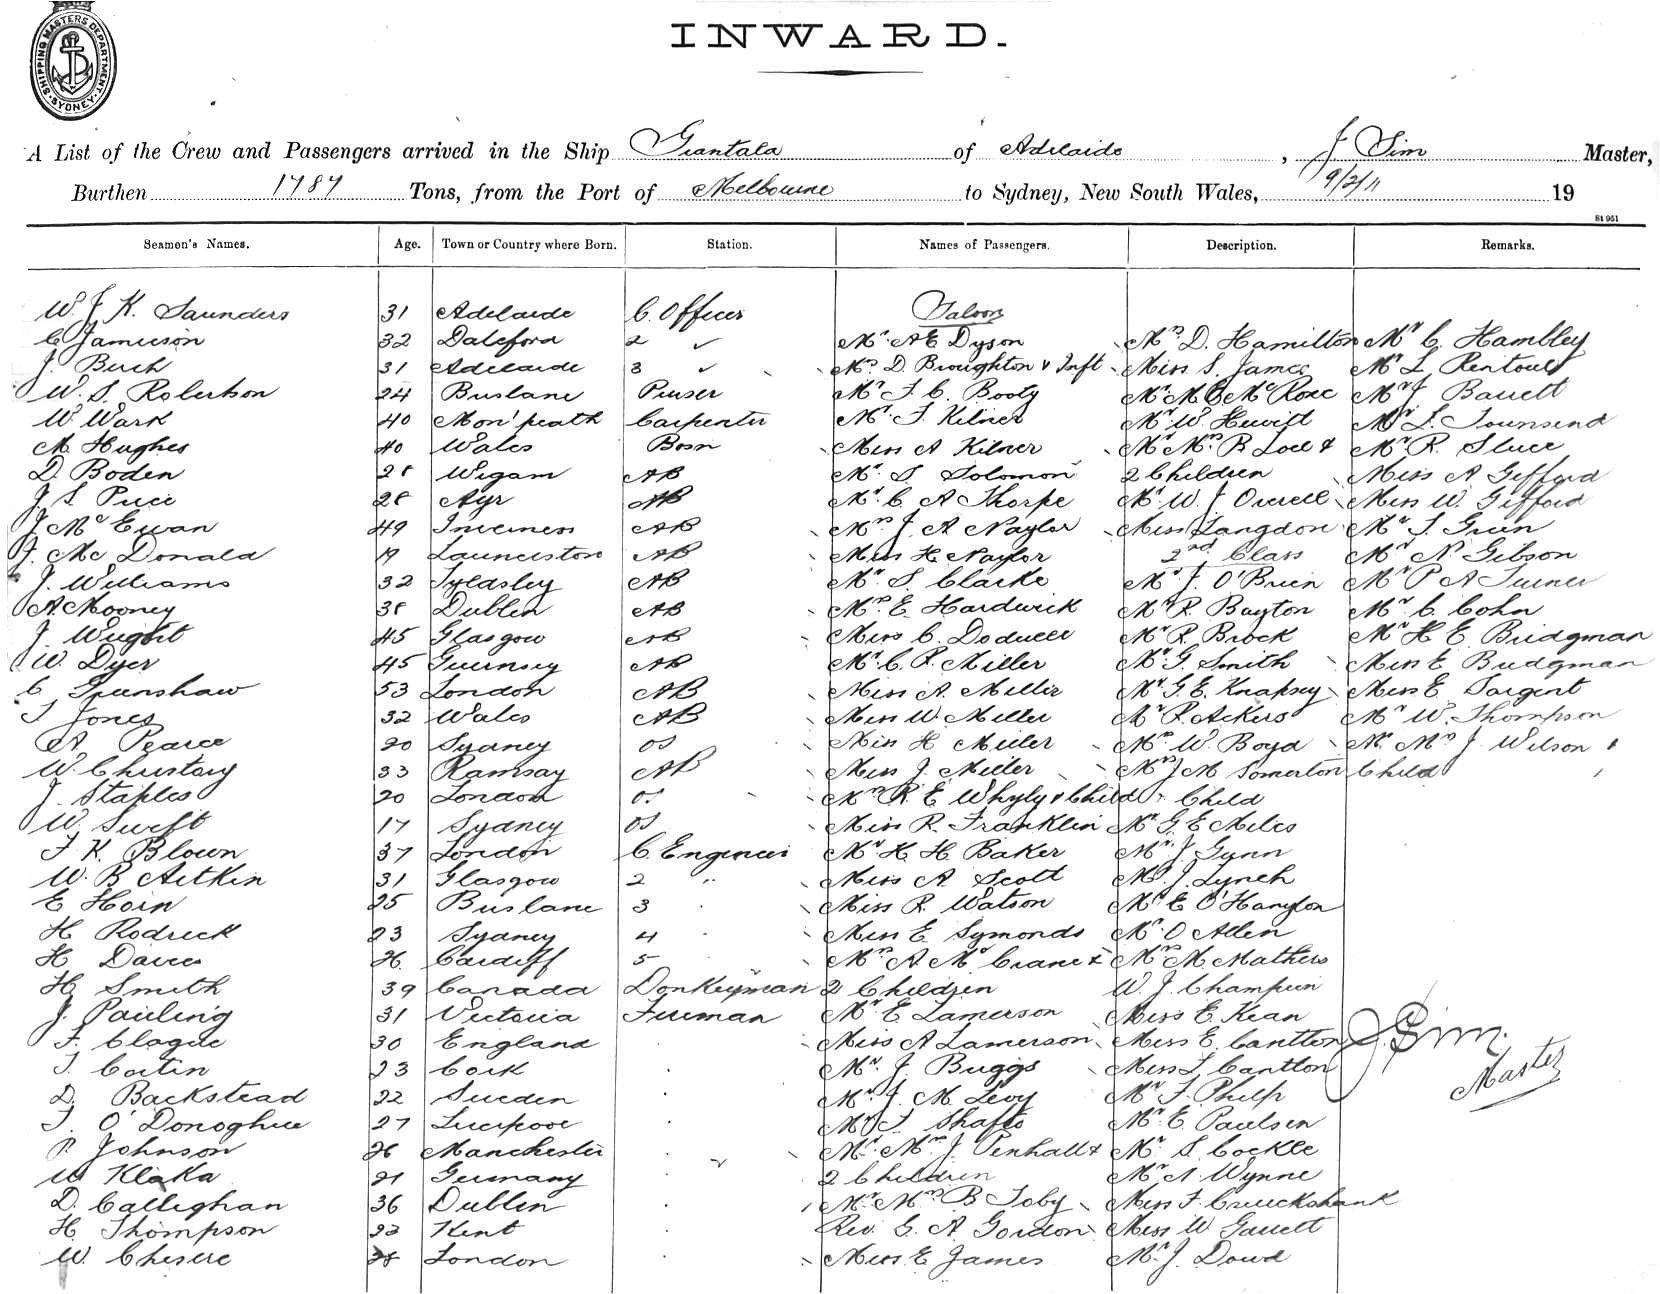 SHIPPING MASTERS DEPARTMENT. SYDNEY.
INWARD.
A List of the Crew and Passengers arrived in the Ship Grantala of Adelaide, J Sim Master,
Burthen 1787 Tons, from the Port of Melbourne to Sydney, New South Wales, 9/2/11 19
81 951
Seamen's Names. Age. Town or Country where Born. Station. Names of Passengers. Description. Remarks.
W. J K. Saunders 31 Adelaide C. Officer Saloon
C Jamieson 32 Daleford 2 Mr. A E Dyson Mrs D. Hamilton Mr C. Hambley
J. Burk 31 Adelaide 3 Mrs D Broughton & Inft Miss S. James Mr L Rentoul
W. S. Robertson 24 Brisbane Purser Mr F. C. Booty Mr M E McRose Mr J Barrett
W Wark 40 Mon'peath Carpenter Mr. F. Kilner Mr W Hewitt Mr L. Townsend
M. Hughes 40 Wales Bosn Miss A Kilner Mr Mrs B Joel & Mr R. Sluce
D. Boden 28 Wigam AB Mr. S. Solomon 2 Children Miss A Gifford
J. S. Price 28 Ayr AB Mr. C. A Thorpe Mr. W. J Overell Miss W. Gifford
J McEwan 49 Inverness AB Mrs J. A Naylor Miss Langdon Mr S. Green
J. McDonald 19 Launceston AB Miss H Naylor 2nd Class Mr N. Gibson
J. Williams 32 Tyldsley AB Mr. S. Clarke Mr J. O'Brien Mr P A Turner
A. Mooney 38 Dublin AB Mrs. E. Hardwick Mr R. Bayton Mr. C. Cohn
J. Wright 45 Glasgow AB Miss C. Doducer Mr R. Brock Mr H E. Bridgman
W. Dyer 45 Guernsey AB Mr. C. R. Miller Mr G. Smith Miss E Bridgman
C. Grunshaw 53 London AB Miss A. Miller Mr G. E. Knapsey Miss E. Sargent
T Jones 32 Wales AB Miss W. Miller Mr R. Ackers Mr W. Thompson
A. Pearce 20 Sydney OS Miss H Miller Mrs W. Boyd Mr Mrs J Wilson &
W. Christory 33 Ramsay AB Miss J. Miller Mrs J M Somerton Child
J. Staples 20 London OS Mrs R. E Whyly & Child Child
W. Swift 17 Sydney OS Miss R. Franklin Mr G E Miles
F K. Blown 37 London C. Engineer Mr H H Baker Mr. J. Gynn
W. B Aitkin 31 Glasgow 2 " Miss A. Scott Mr. J. Lynch
E Horn 25 Brisbane 3 Miss R. Watson Mr E O'Hanylon
H Rodrick 23 Sydney 4 Miss E Symonds Mr O Allen
H Davies 26 Cardiff 5 Mrs A McCrane & Mrs M Mathers
H. Smith 39 Canada Donkeyman 2 Children W. J. Champion
J. Pauling 31 Victoria Fireman Mr. E Lamerson Miss E Kean
F. Clague 30 England Miss A Lamerson Miss E. Cantlon J. Sim.
T. Coitin 23 Cork Mr. J. Buggs Miss L Cantlon Master
D. Backstead 22 Sweden Mr. J. M. Levy Mr F Philp
T. O'Donoghue 27 Liverpool Mr T Shafto Mr. E. Paulsen
P. Johnson 26 Manchester Mr. Mrs. J. Penhall & Mr S. Cockle
W Klaka 21 Germany 2 Children Mr A Wynne
D. Callighan 36 Dublin Mr. Mrs B Toby Miss F. Cruickshank
H. Thompson 23 Kent Rev. G. A Gordon Miss W Garrett
W. Chesire 38 London Miss E James Mr J. Dowd